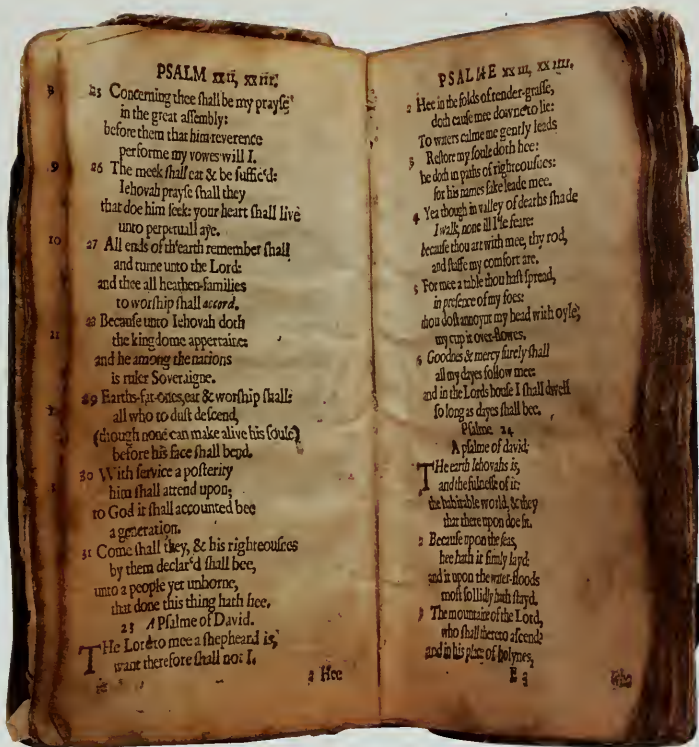 PSALM xxii, xxiii.
25 Concerning thee ſhall be my prayſe
in the great aſſembly:
before them that him reverence
performe my vowes will I.
26 The meek ſhall eat & be ſuffic'd:
Iehovah prayſe ſhall they
that doe him ſeek: your heart ſhall live
unto perpetuall aye.
27 All ends of th'earth remember ſhall
and turne unto the Lord:
and thee all heathen-families
to worſhip ſhall accord.
28 Becauſe unto Iehovah doth
the kingdome appertaine:
and he among the nations
is ruler Soveraigne.
29 Earths-fat-ones, eat & worſhip ſhall:
all who to duſt deſcend,
(though none can make alive his ſoule)
before his face ſhall bend.
30 With ſervice a poſterity
him ſhall attend upon;
to God it ſhall accounted bee
a generation.
31 Come ſhall they, & his righteouſnes
by them declar'd ſhall bee,
unto a people yet unborne,
that done this thing hath hee.
23 A Pſalme of David.
THe Lord to mee a ſhepheard is,
want therefore ſhall not I.
2 Hee
PSALME xxiii, xxiiii.
2 Hee in the folds of tender-graſſe,
doth cauſe mee downe to lie:
To waters calme me gently leads
3 Reſtore my ſoule doth hee:
he doth in paths of righteouſnes:
for his names ſake leade mee.
4 Yea though in valley of deaths ſhade
I walk, none ill I'le feare:
becauſe thou art with mee, thy rod,
and ſtaffe my comfort are.
5 For mee a table thou haſt ſpread,
in preſence of my foes:
thou doſt annoynt my head with oyle,
my cup it over-flowes.
6 Goodnes & mercy ſurely ſhall
all my dayes follow mee:
and in the Lords houſe I ſhall dwell
ſo long as dayes ſhall bee.
Pſalme 24
A pſalme of david:
THe earth Iehovahs is,
and the fulneſſe of it:
the habitable world, & they
that there upon doe ſit.
2 Becauſe upon the ſeas,
hee hath it firmly layd:
and it upon the water-floods
moſt ſollidly hath ſtayd.
3 The mountaine of the Lord,
who ſhall thereto aſcend?
and in his place of holynes,
E 3